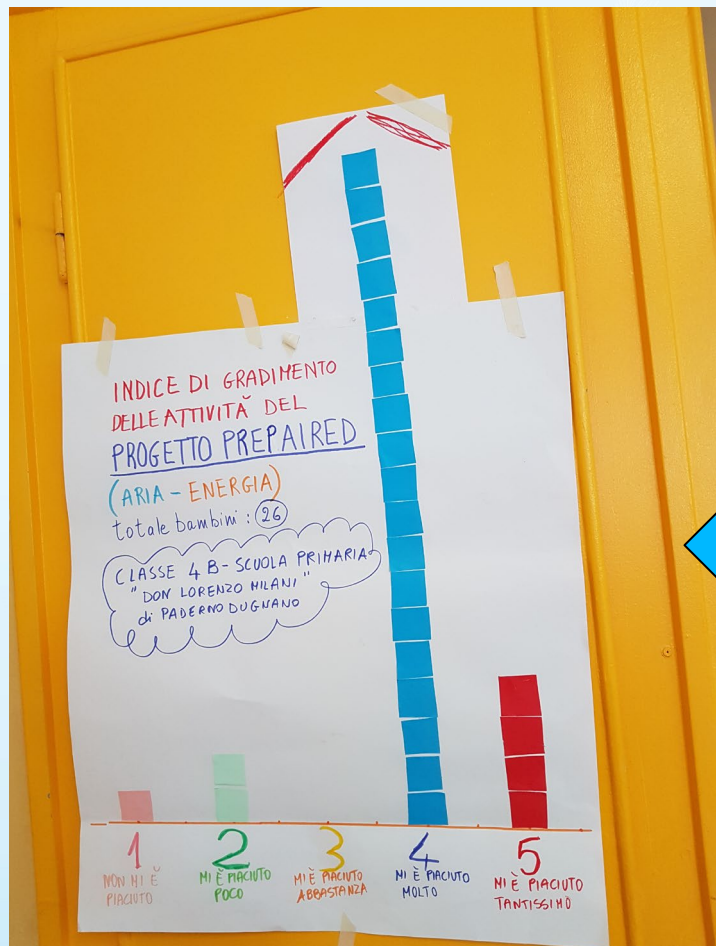 INDICE DI GRADIMENTO
DELLE ATTIVITÀ DEL
PROGETTO PREPAIRED
(ARIA - ENERGIA)
totale bambini : 26
CLASSE 4 B - SCUOLA PRIMARIA
"DON LORENZO MILANI"
di PADERNO DUGNANO
1 2 3 4 5
NON MI È PIACIUTO
MI È PIACIUTO POCO
MI È PIACIUTO ABBASTANZA
MI È PIACIUTO MOLTO
MI È PIACIUTO TANTISSIMO